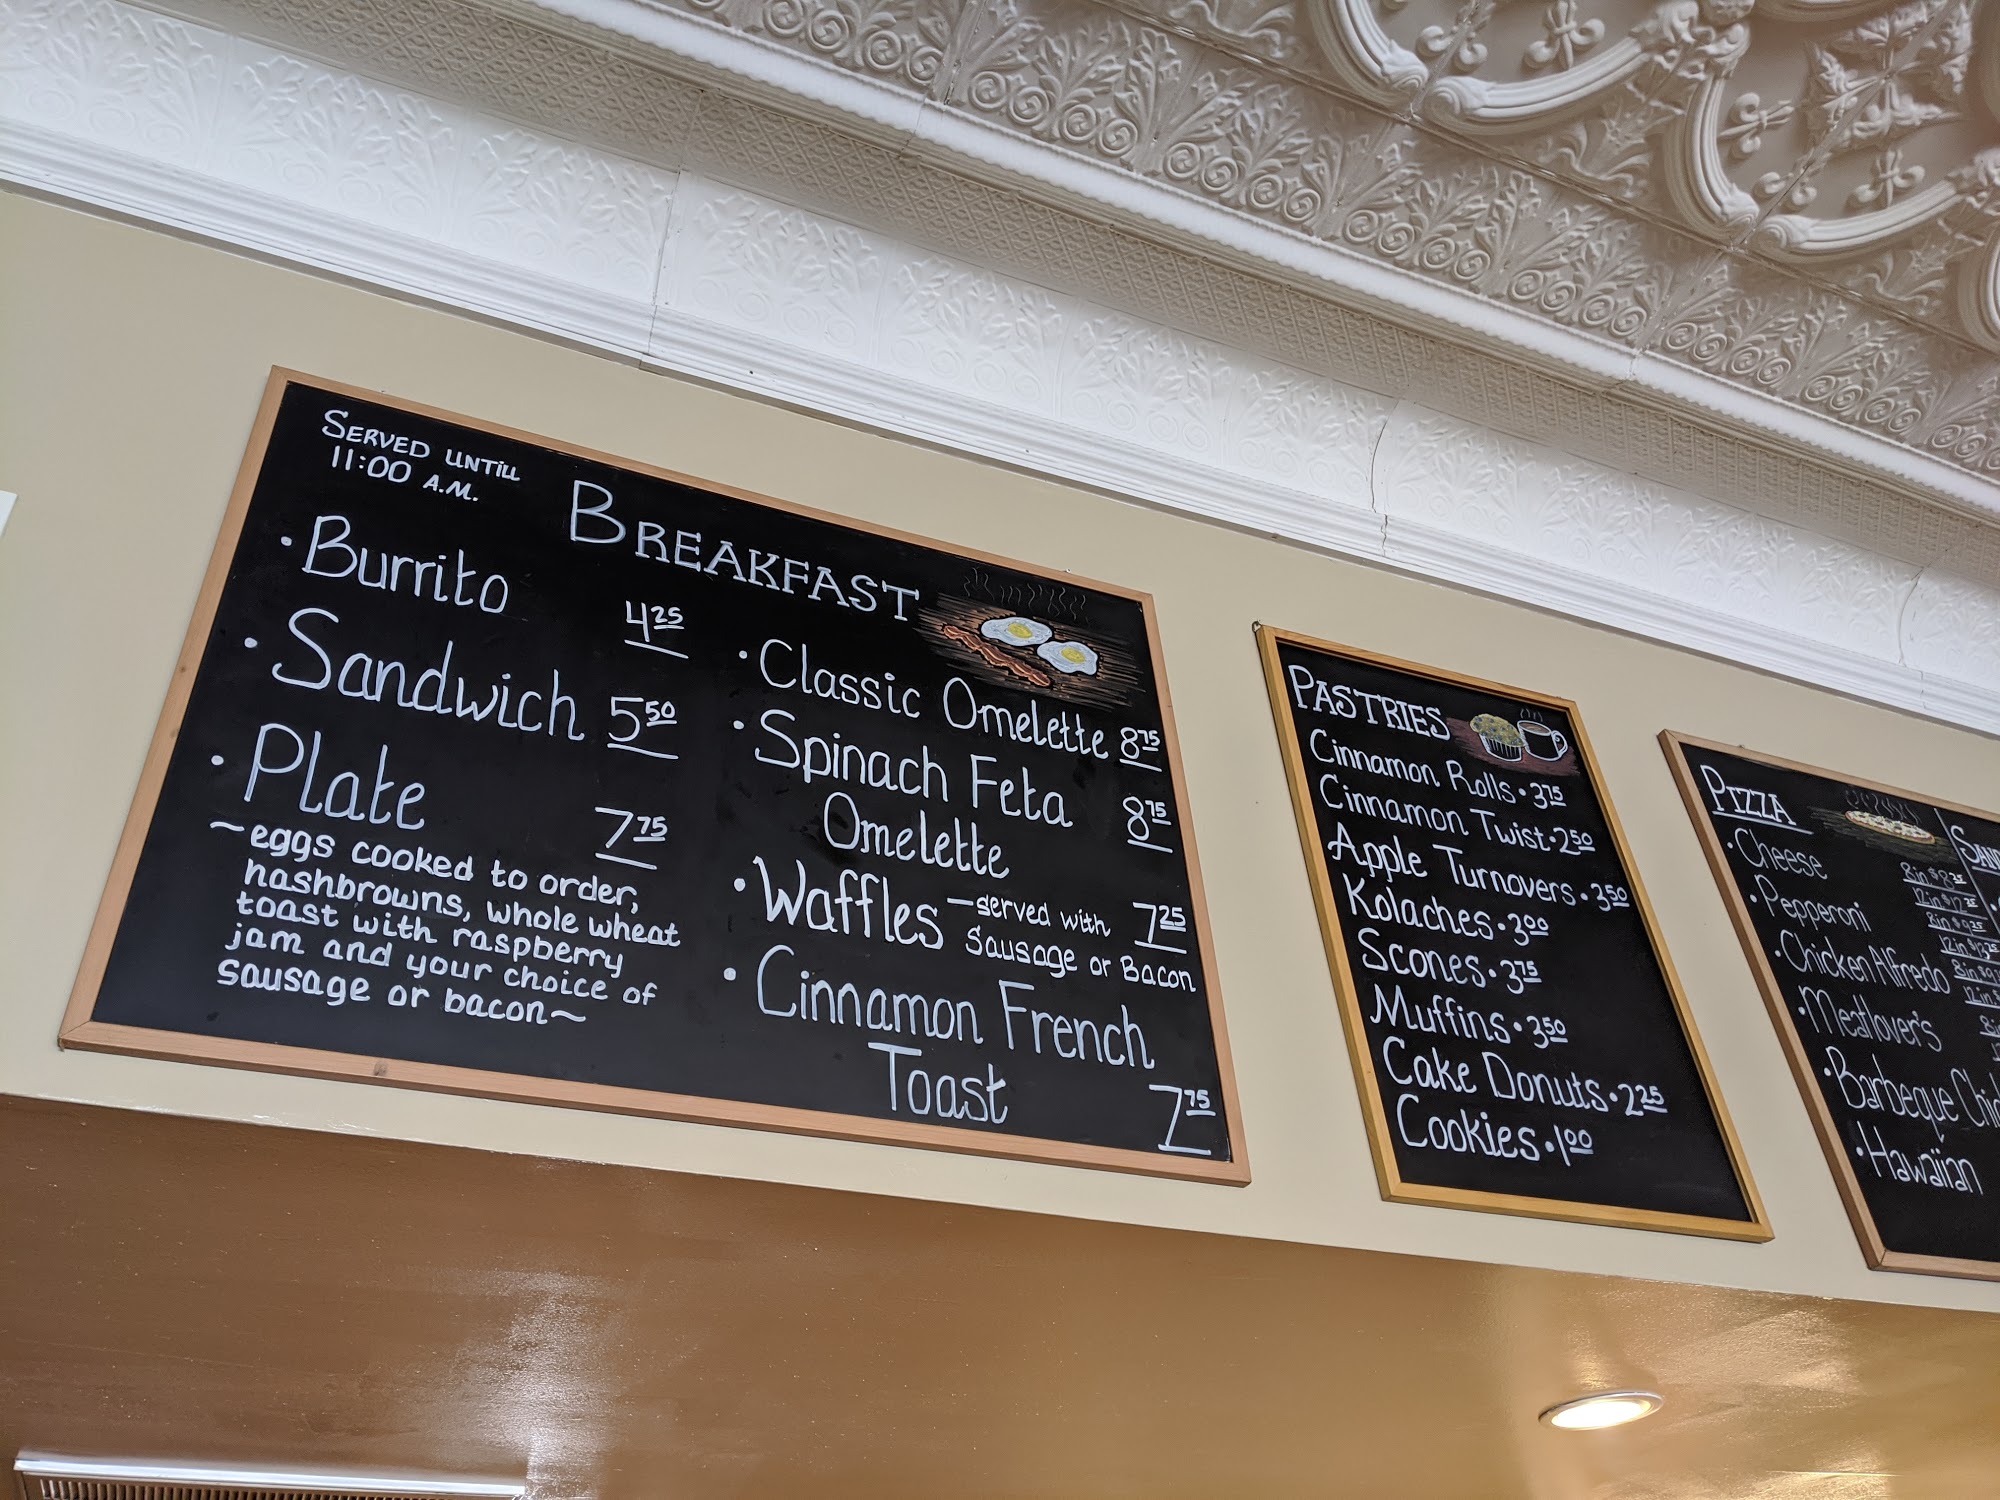 SERVED UNTILL
11:00 A.M.
BREAKFAST
• Burrito 4.25
• Sandwich 5.50
• Plate 7.75
~eggs cooked to order,
hashbrowns, whole wheat
toast with raspberry
jam and your choice of
sausage or bacon~
• Classic Omelette 8.75
• Spinach Feta 8.75
Omelette
• Waffles –served with 7.25
Sausage or Bacon
• Cinnamon French
Toast 7.75
PASTRIES
Cinnamon Rolls • 3.75
Cinnamon Twist • 2.50
Apple Turnovers • 3.50
Kolaches • 3.00
Scones • 3.75
Muffins • 3.50
Cake Donuts • 2.25
Cookies • 1.00
PIZZA
• Cheese
• Pepperoni
• Chicken Alfredo
• Meatlover's
• Barbeque
• Hawaiian